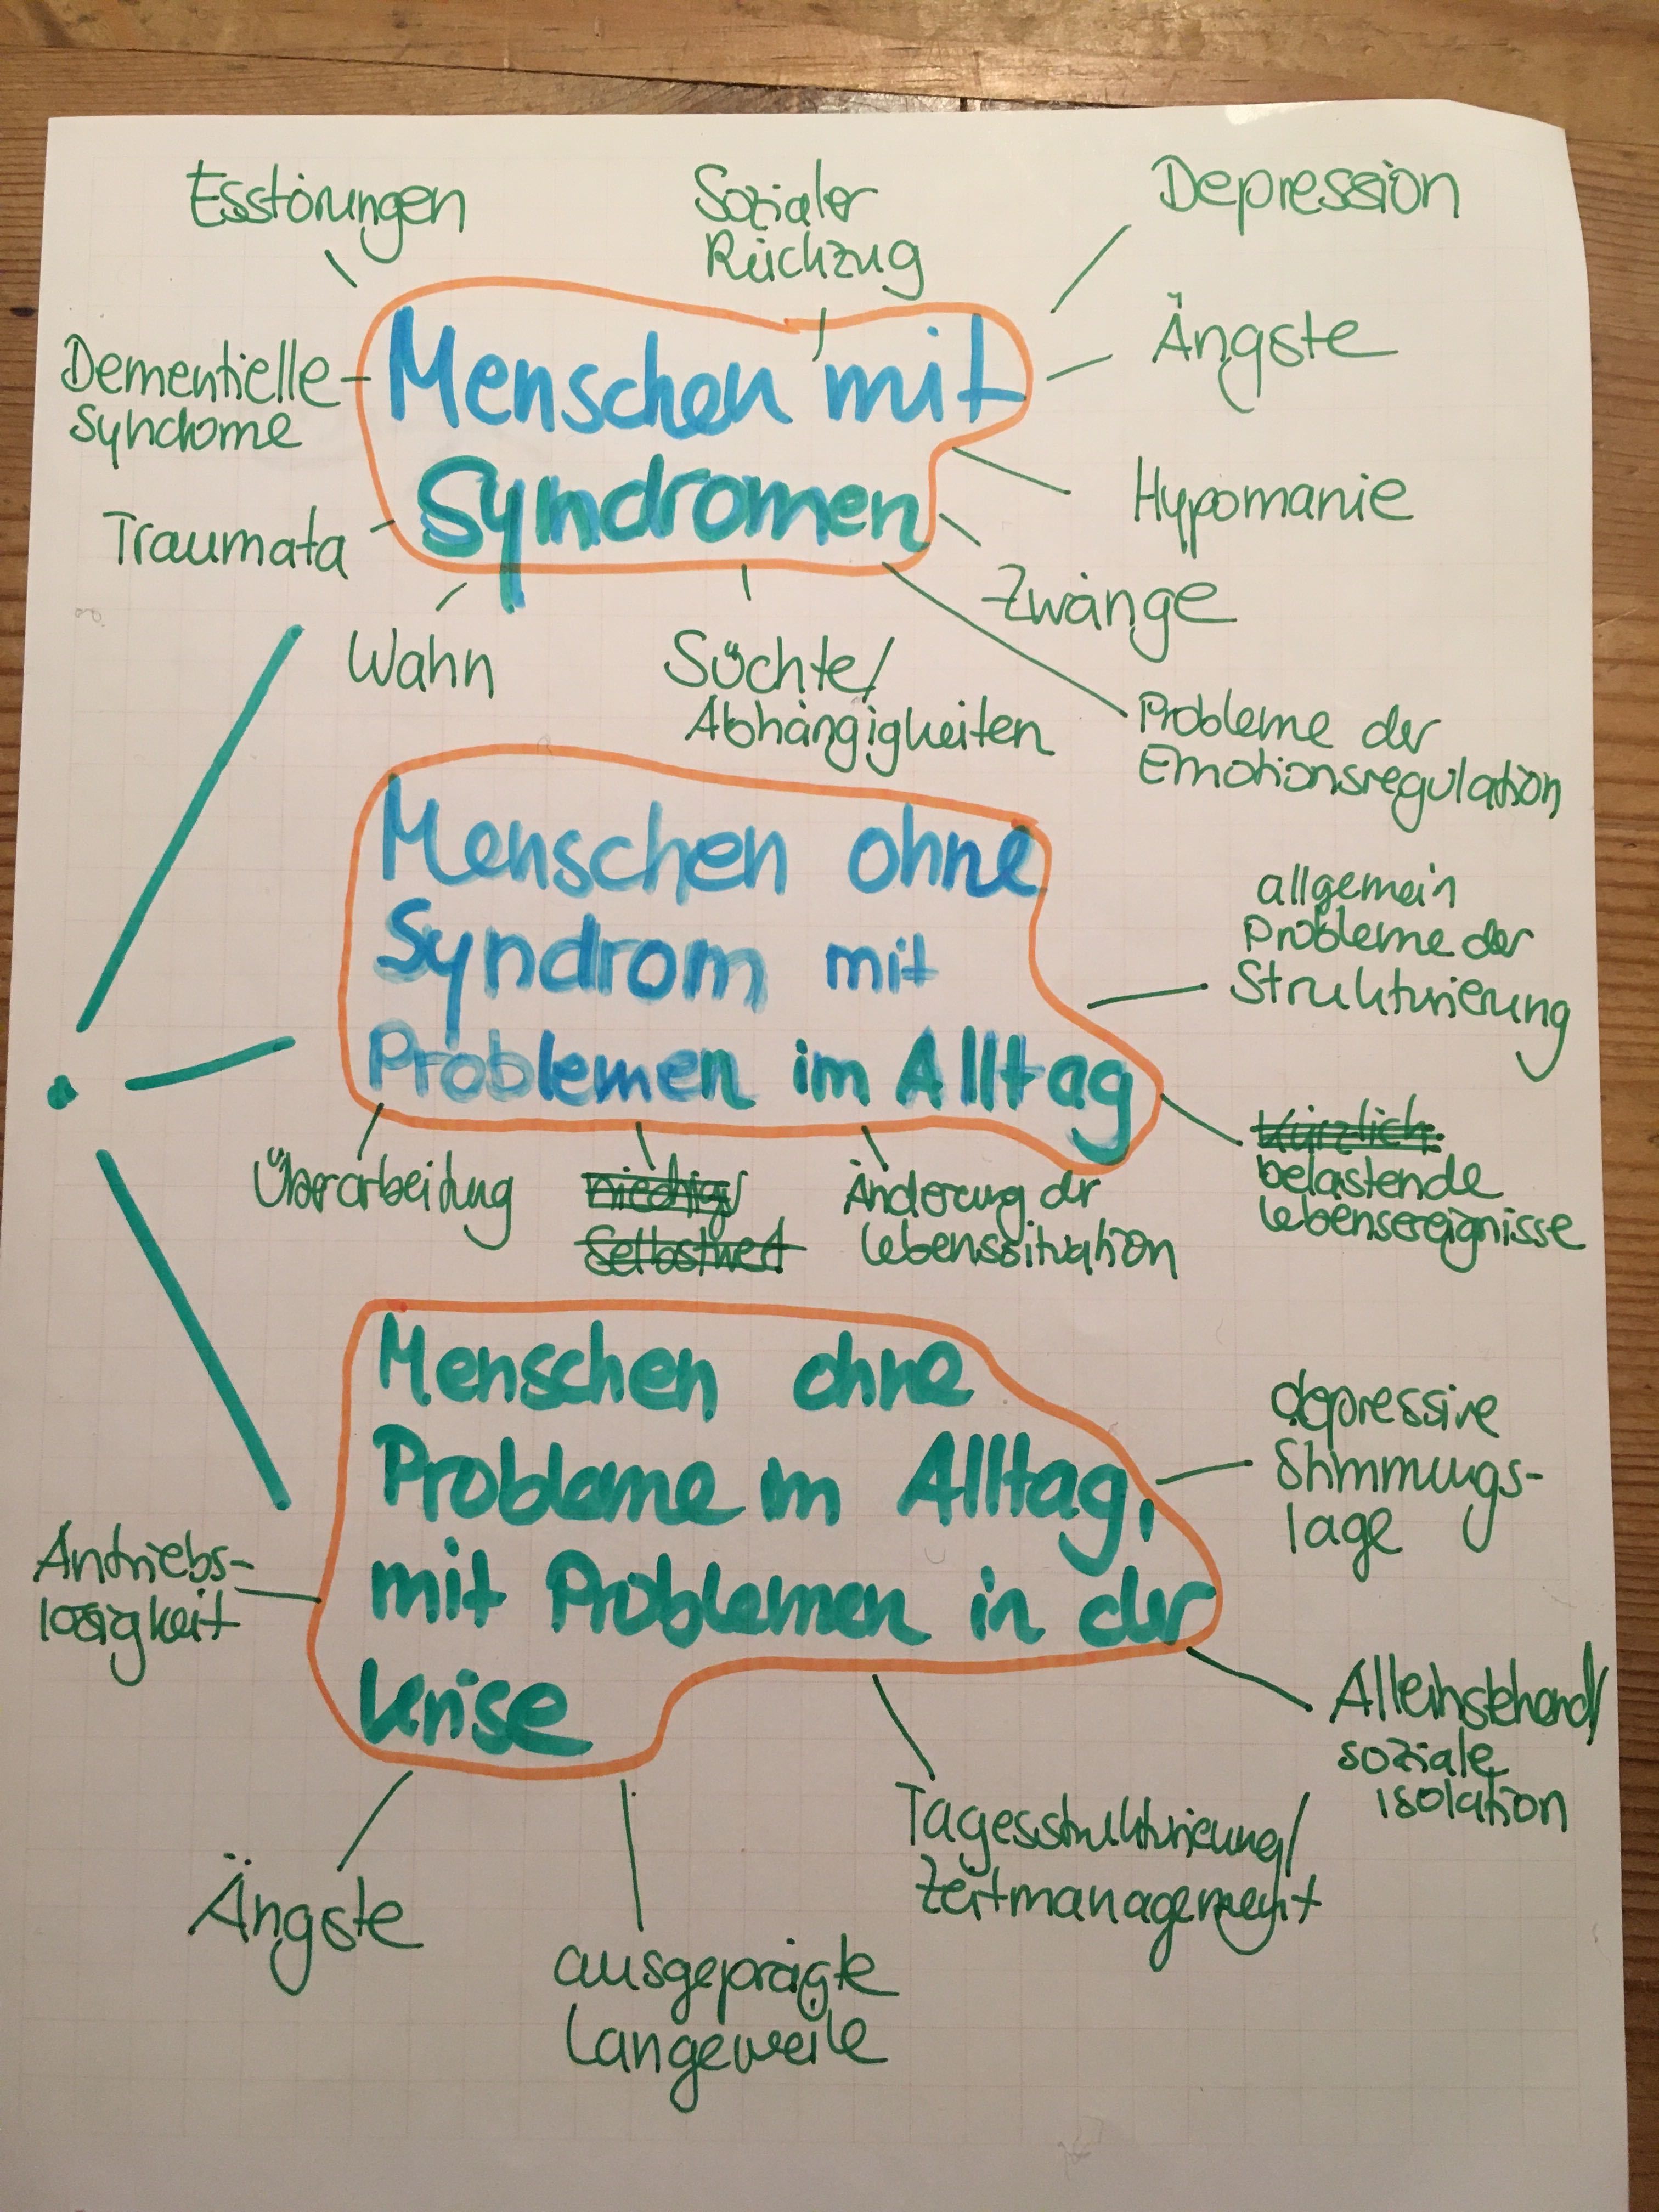 Esstörungen
Sozialer
Rückzug
Depression
Ängste
Dementielle
Syndrome
Menschen mit
Syndromen
Hypomanie
Traumata
Zwänge
Wahn
Süchte/
Abhängigkeiten
Probleme der
Emotionsregulation
Menschen ohne
Syndrom mit
Problemen im Alltag
allgemein
Probleme der
Strukturierung
kürzlich
belastende
Lebensereignisse
Überarbeitung
niedriger
Selbstwert
Änderung der
Lebenssituation
Menschen ohne
Probleme im Alltag,
mit Problemen in der
Krise
depressive
Stimmungs-
lage
Antriebs-
losigkeit
Alleinstehend/
soziale
isolation
Tagesstrukturierung/
Zeitmanagement
Ängste
ausgeprägte
Langeweile